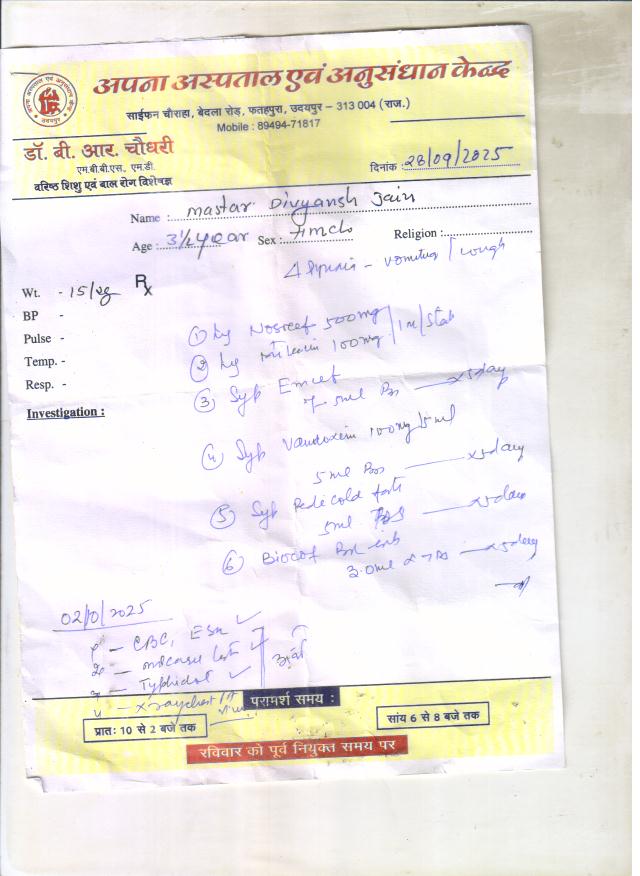 अपना अस्पताल एवं अनुसंधान केन्द्र
साईफन चौराहा, बेदला रोड़, फतहपुरा, उदयपुर – 313 004 (राज.)
Mobile : 89494-71817
डॉ. बी. आर. चौधरी
एम.बी.बी.एस., एम.डी.
वरिष्ठ शिशु एवं बाल रोग विशेषज्ञ
दिनांक : 28/09/2025
Name : Mastar Divyansh Jain
Age : 3½ year Sex : Religion :
vomiting / cough
Wt. - 15/kg Rx
BP -
Pulse -
Temp. -
Resp. -
Investigation :
① 500mg
② 100mg / Im/Stat
③ Syp Emcet
5ml x5day
④ Syp 100mg/5ml
5ml x5day
⑤ Syp Pedicold forte
5ml x5day
⑥ Biocof
3.0ml x5day
02/10/2025
१ – CBC, ESR
२ –
३ – Typhidot
४ – x ray chest PA
परामर्श समय :
प्रातः 10 से 2 बजे तक
सांय 6 से 8 बजे तक
रविवार को पूर्व नियुक्त समय पर